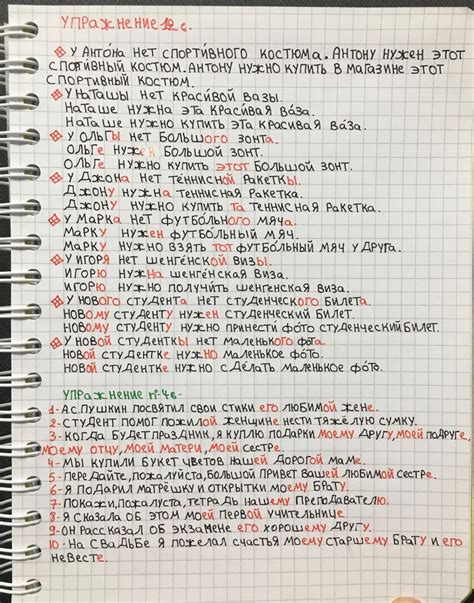 Упражнение 12 с.
У Антóна нет спорти́вного костюма. Антону нужен этот
спорти́вный костюм. Антону нужно купить в магазине этот
спортивный костюм.
У Наташы нет краси́вой вазы.
Наташе нужна эта красивая вáза.
Наташе нужно купить эта красивая вáза.
У Ольгы нет большого зонта.
Ольге нужен большой зонт.
Ольге нужно купить этот большой зонт.
У Джона нет теннисной ракеткы.
Джону нужна теннисная ракетка.
Джону нужно купить та теннисная ракетка.
У Марка нет футбóльного мяча.
Марку нужен футбóльный мяч.
Марку нужно взять тот футбóльный мяч у друга.
У Игоря нет шенгéнской визы.
Игорю нужна шенгéнская виза.
Игорю нужно получи́ть шенгенская виза.
У нового студента нет студенческого билета.
Новому студенту нужен студенческий билет.
Новому студенту нужно принести фóто студенческий билет.
У новой студенткы нет маленького фота.
Новой студентке нужно маленькое фóто.
Новой студентке нужно сделать маленькое фóто.
Упражнение nº4в-
1-А.С.Пушкин посвятил свои стики его любимой жене.
2-Студент помог пожилой женщине нести тяжёлую сумку.
3-Когда будет праздник, я куплю подарки моему другу, моей подруге,
моему отцу, моей матери, моей сестре.
4-Мы купили букет цветов нашей дорогой маме.
5-Передайте, пожалуйста, большой привет вашей любимой сестре.
6-Я подарил матрёшку и открытки моему брату.
7-Покажи, пожалуста, тетрадь нашему преподавателю.
8-Я сказала об этом моей первой учительнице
9-Он рассказал об экзамене его хорошему другу.
10-На свадьбе я пожелал счастья моему старшему брату и его
невесте.